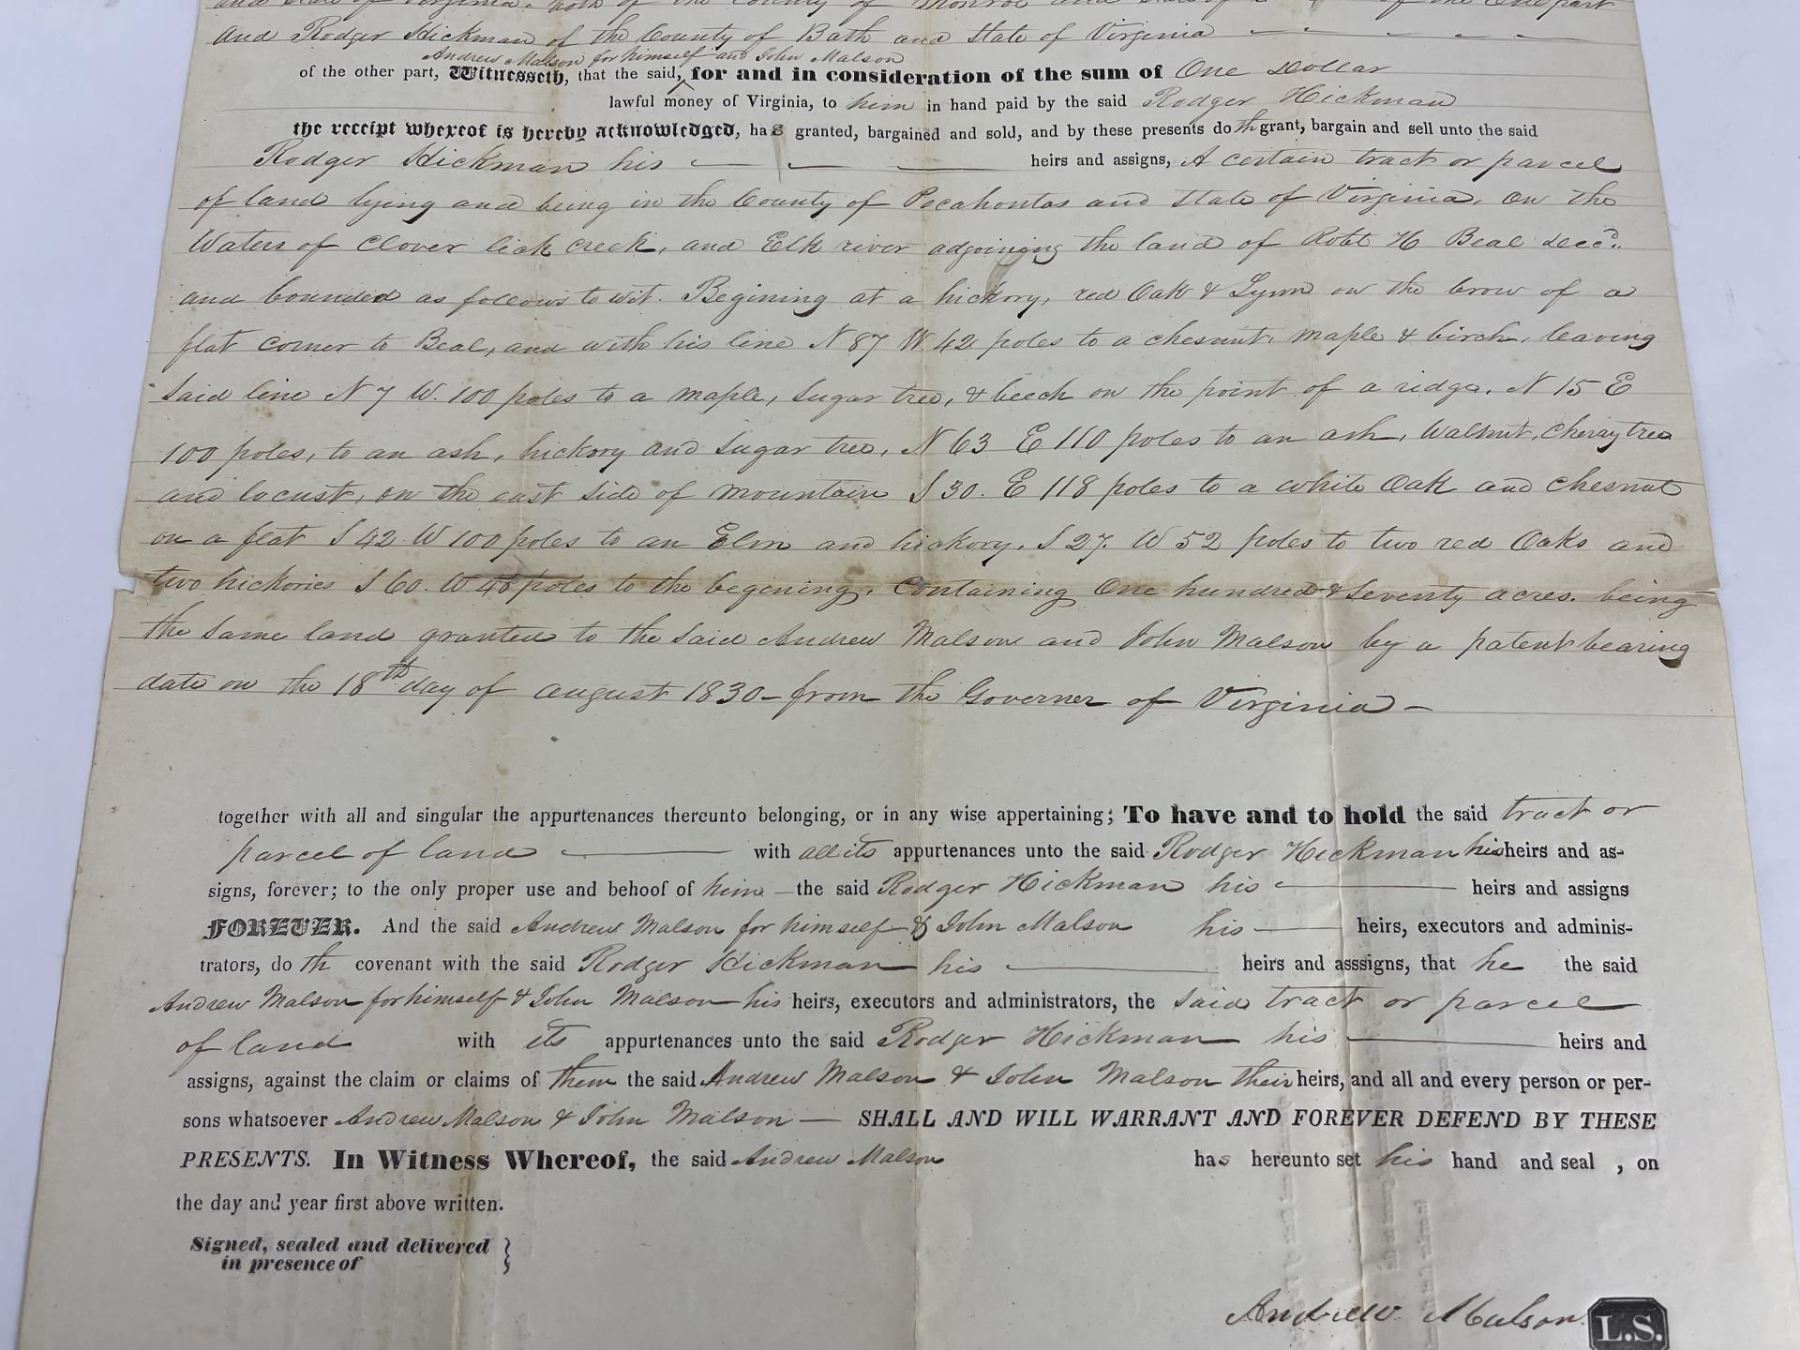 and State of Virginia, both of the County of Monroe and State of of the One part
and Rodger Hickman of the County of Bath and State of Virginia
Andrew Malson for himself and John Malson
of the other part, Witnesseth, that the said, for and in consideration of the sum of One Dollar
lawful money of Virginia, to him in hand paid by the said Rodger Hickman
the receipt whereof is hereby acknowledged, has granted, bargained and sold, and by these presents doth grant, bargain and sell unto the said
Rodger Hickman his — — — heirs and assigns, A certain tract or parcel
of land lying and being in the County of Pocahontas and State of Virginia, on the
Waters of Clover lick creek, and Elk river adgoining the land of Robt H Beal decd..
and bounded as follows to wit. Begining at a hickory, red Oak & Lynn on the brow of a
flat corner to Beal, and with his line N 87 W 42 poles to a chesnut, maple & birch, leaving
said line N 7 W. 100 poles to a maple, sugar tree, & beech on the point of a ridge, N 15 E
100 poles, to an ash, hickory and sugar tree, N 63 E 110 poles to an ash, Walnut, Cherry tree
and locust, on the east side of mountain S 30. E 118 poles to a white Oak and chesnut
on a flat S 42 W 100 poles to an Elm and hickory, S 27. W 52 poles to two red Oaks and
two hickories S 60. W 48 poles to the begening, Containing One hundred & Seventy acres. being
the same land granted to the said Andrew Malson and John Malson by a patent bearing
date on the 18th day of august 1830 – from the Governer of Virginia –
together with all and singular the appurtenances thereunto belonging, or in any wise appertaining; To have and to hold the said tract or
parcel of land — with all its appurtenances unto the said Rodger Hickman his heirs and as-
signs, forever; to the only proper use and behoof of him — the said Rodger Hickman his — heirs and assigns
FOREVER. And the said Andrew Malson for himself & John Malson his — heirs, executors and adminis-
trators, do th covenant with the said Rodger Hickman his — heirs and asssigns, that he the said
Andrew Malson for himself & John Malson his heirs, executors and administrators, the said tract or parcel
of land with its appurtenances unto the said Rodger Hickman his — heirs and
assigns, against the claim or claims of them the said Andrew Malson & John Malson their heirs, and all and every person or per-
sons whatsoever Andrew Malson & John Malson — SHALL AND WILL WARRANT AND FOREVER DEFEND BY THESE
PRESENTS. In Witness Whereof, the said Andrew Malson has hereunto set his hand and seal , on
the day and year first above written.
Signed, sealed and delivered }
in presence of
Andrew Malson. L.S.